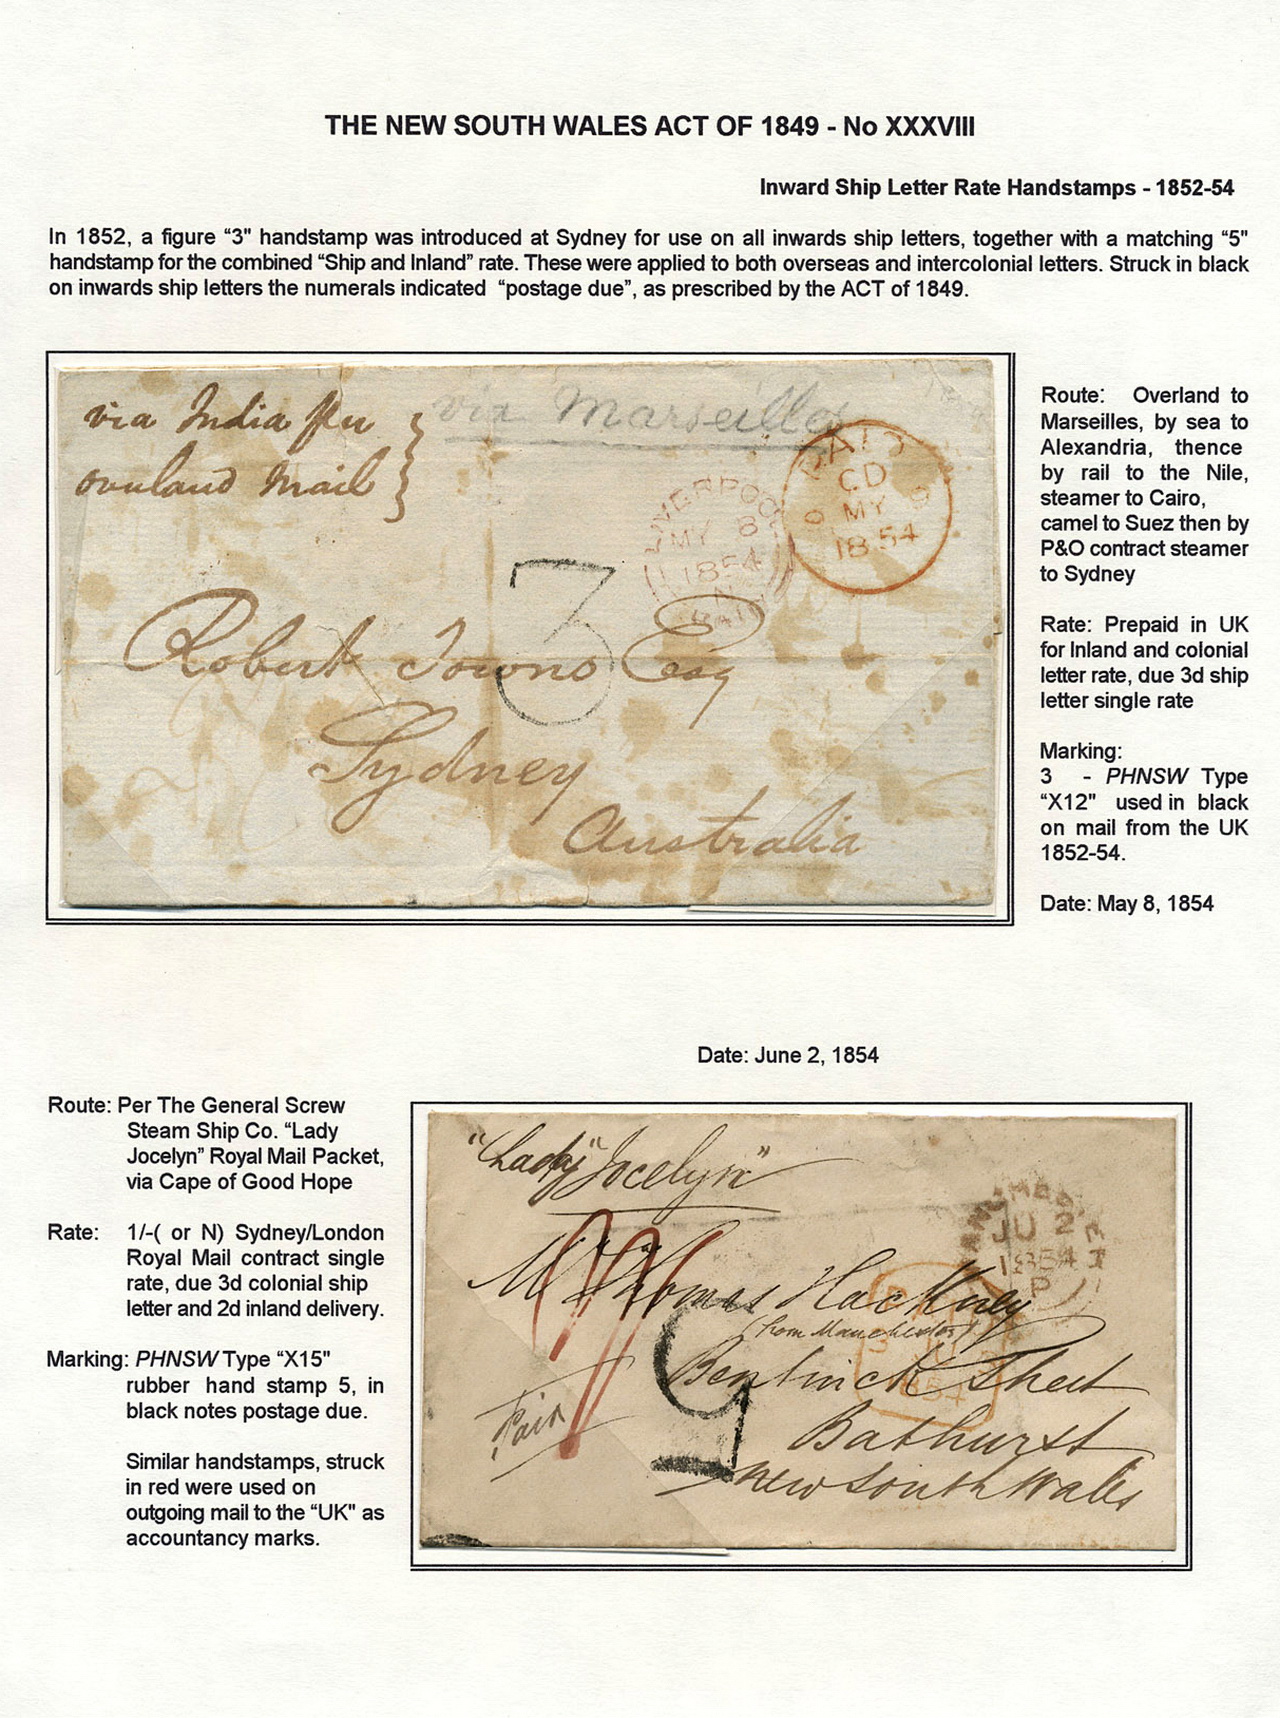 THE NEW SOUTH WALES ACT OF 1849 - No XXXVIII
Inward Ship Letter Rate Handstamps - 1852-54
In 1852, a figure “3" handstamp was introduced at Sydney for use on all inwards ship letters, together with a matching “5"
handstamp for the combined “Ship and Inland” rate. These were applied to both overseas and intercolonial letters. Struck in black
on inwards ship letters the numerals indicated “postage due”, as prescribed by the ACT of 1849.
via India per
overland Mail
via Marseilles
PAID
CD
MY
1854
LIVERPOOL
MY 8
1854
N
3
Robert Towns Esq
Sydney
Australia
Route: Overland to
Marseilles, by sea to
Alexandria, thence
by rail to the Nile,
steamer to Cairo,
camel to Suez then by
P&O contract steamer
to Sydney
Rate: Prepaid in UK
for Inland and colonial
letter rate, due 3d ship
letter single rate
Marking:
3 - PHNSW Type
“X12" used in black
on mail from the UK
1852-54.
Date: May 8, 1854
Date: June 2, 1854
Route: Per The General Screw
Steam Ship Co. “Lady
Jocelyn” Royal Mail Packet,
via Cape of Good Hope
Rate: 1/-( or N) Sydney/London
Royal Mail contract single
rate, due 3d colonial ship
letter and 2d inland delivery.
Marking: PHNSW Type “X15"
rubber hand stamp 5, in
black notes postage due.
Similar handstamps, struck
in red were used on
outgoing mail to the “UK" as
accountancy marks.
“Lady Jocelyn”
JU 2
1854
P
Mr Thomas Hackney
(from Manchester)
5
Bentinck Street
Paid
Bathurst
New South Wales